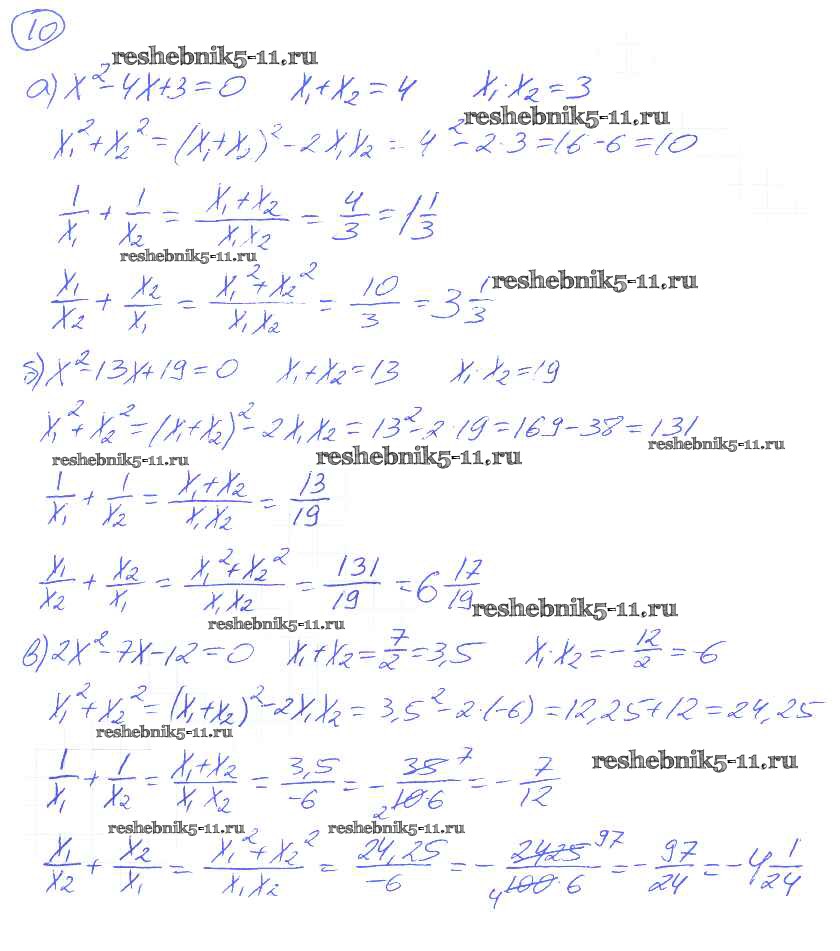 10
reshebnik5-11.ru
а) x² - 4x + 3 = 0 x₁ + x₂ = 4 x₁ · x₂ = 3
reshebnik5-11.ru
x₁² + x₂² = (x₁ + x₂)² - 2x₁x₂ = 4² - 2 · 3 = 16 - 6 = 10
1/x₁ + 1/x₂ = (x₁ + x₂)/(x₁x₂) = 4/3 = 1 1/3
reshebnik5-11.ru
x₁/x₂ + x₂/x₁ = (x₁² + x₂²)/(x₁x₂) = 10/3 = 3 1/3
reshebnik5-11.ru
б) x² - 13x + 19 = 0 x₁ + x₂ = 13 x₁ · x₂ = 19
x₁² + x₂² = (x₁ + x₂)² - 2x₁x₂ = 13² - 2 · 19 = 169 - 38 = 131
reshebnik5-11.ru reshebnik5-11.ru reshebnik5-11.ru
1/x₁ + 1/x₂ = (x₁ + x₂)/(x₁x₂) = 13/19
x₁/x₂ + x₂/x₁ = (x₁² + x₂²)/(x₁x₂) = 131/19 = 6 17/19
reshebnik5-11.ru reshebnik5-11.ru
в) 2x² - 7x - 12 = 0 x₁ + x₂ = 7/2 = 3,5 x₁ · x₂ = - 12/2 = -6
x₁² + x₂² = (x₁ + x₂)² - 2x₁x₂ = 3,5² - 2 · (-6) = 12,25 + 12 = 24,25
reshebnik5-11.ru
1/x₁ + 1/x₂ = (x₁ + x₂)/(x₁x₂) = 3,5/-6 = - 35 7/2 10·6 = - 7/12
reshebnik5-11.ru
reshebnik5-11.ru reshebnik5-11.ru
x₁/x₂ + x₂/x₁ = (x₁² + x₂²)/(x₁x₂) = 24,25/-6 = - 2425 97/4 100·6 = - 97/24 = -4 1/24